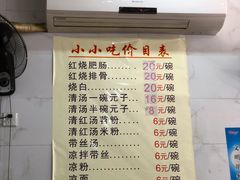 小小吃价目表
红烧肥肠........20元/碗
红烧排骨........20元/碗
烧白............20元/碗
清汤一碗元子...16元/碗
清汤半碗元子...8元/碗
清红汤抄粉......6元/碗
清红汤米粉......6元/碗
带丝汤..........6元/碗
凉拌带丝........6元/碗
凉粉............6元/碗
凉面............6元/碗